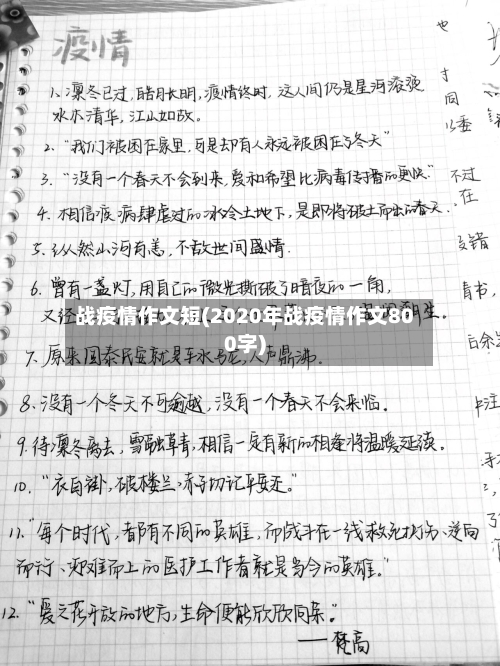 疫情
1. 凛冬已过,皓月长明,疫情终时,这人间仍是星河滚烫
水木清华,江山如故。
2. “我们被困在家里,可是却有人永远被困在了冬天”
3. “没有一个春天不会到来,爱和希望比病毒传播的更快”
4. 相信疫病肆虐过的冰冷土地下,是即将破土而出的春天.
5. 纵然山河有恙,不敌世间盛情.
6. 曾有一盏灯,用自己的微光撕破了暗夜的一角,
战疫情作文短(2020年战疫情作文80
0字)
7. 原来国泰民安就是车水马龙,人声鼎沸.
8. 没有一个冬天不可逾越,没有一个春天不会来临.
9. 待凛冬离去,雪融草青,相信一定有新的相逢将温暖延续.
10. “衣白褂,破楼兰,赤子切记平安还。”
11. “每个时代,都有不同的英雄,而战斗在一线救死扶伤、逆向
而行、迎难而上的医护工作者就是当今的英雄。”
12. “爱之花开放的地方,生命便能欣欣向荣。”
——梵高
也
寸
同
以委
不过
在
反错
青书,
白余